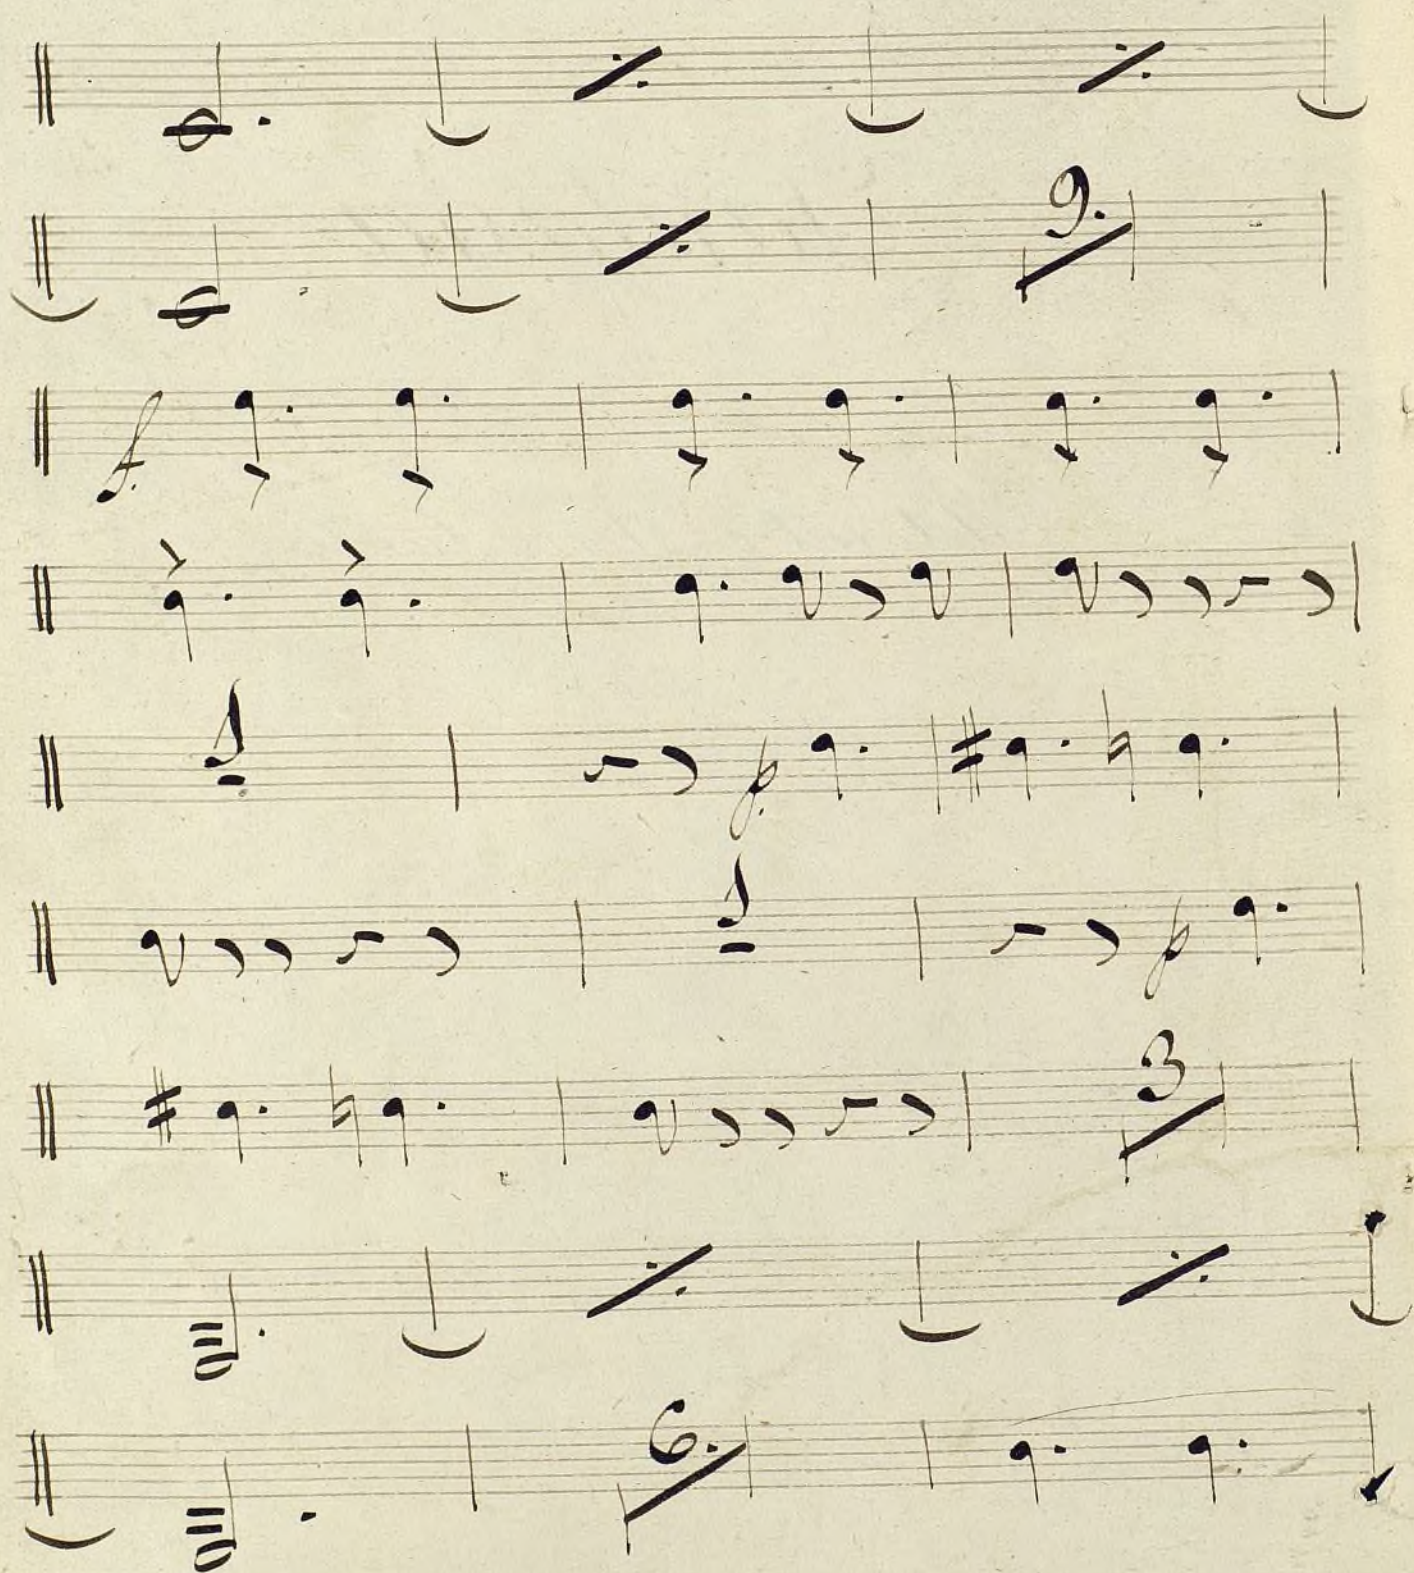 9.
f.
1
p.
1
p
3
6.